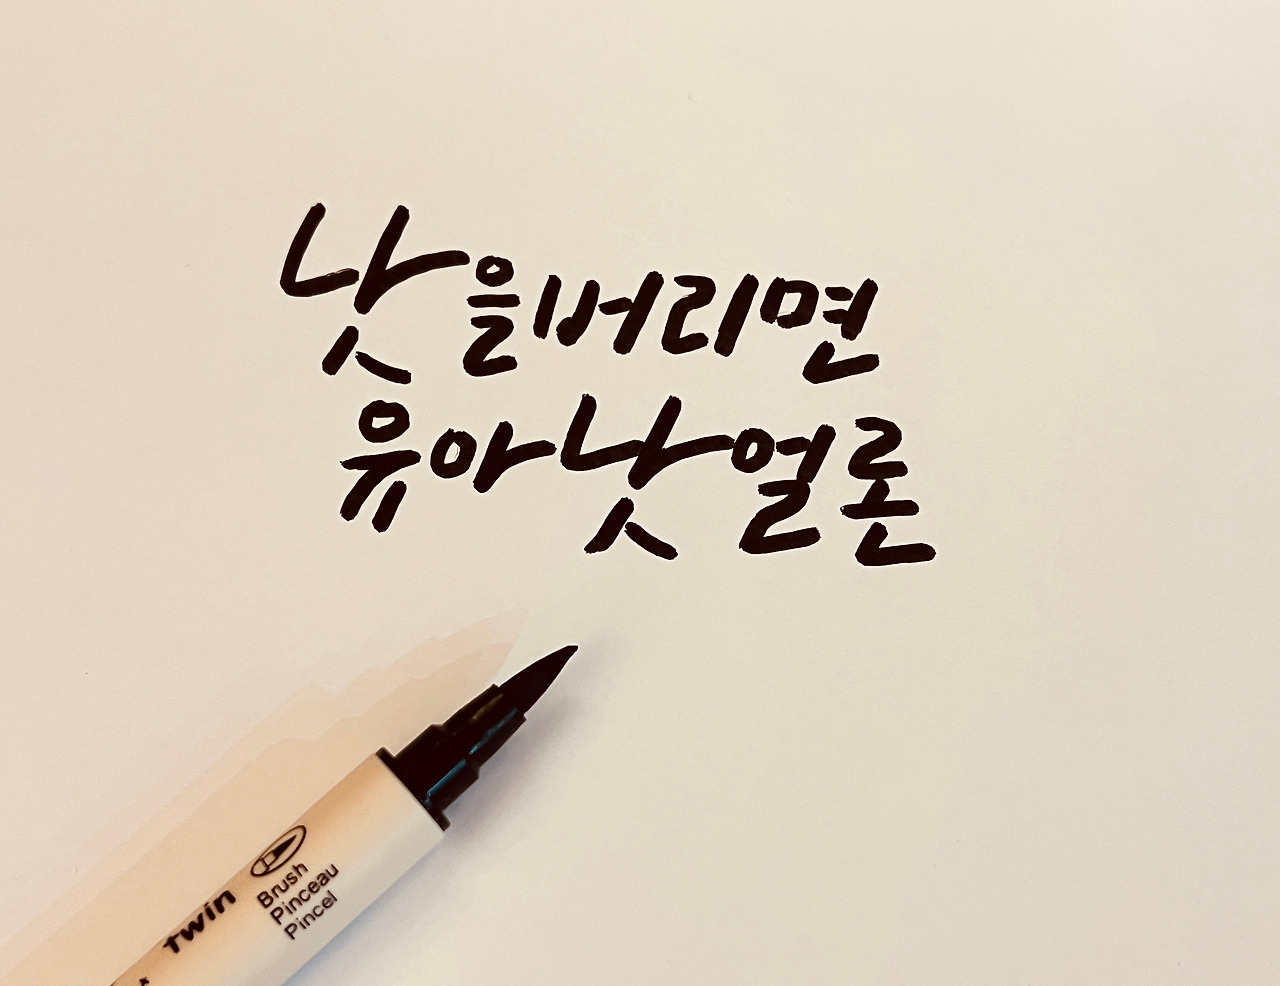 낫을버리면
유아낫얼론
twin
Brush
Pinceau
Pincel